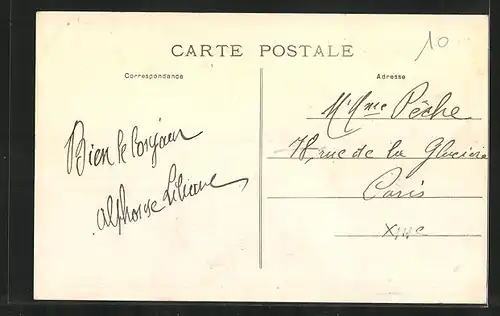 CARTE POSTALE
10
Correspondance
Adresse
Bien le bonjour
Alphonse Liliane
M. Mme Pêche
78, rue de la Glacière
Paris
XIIIe